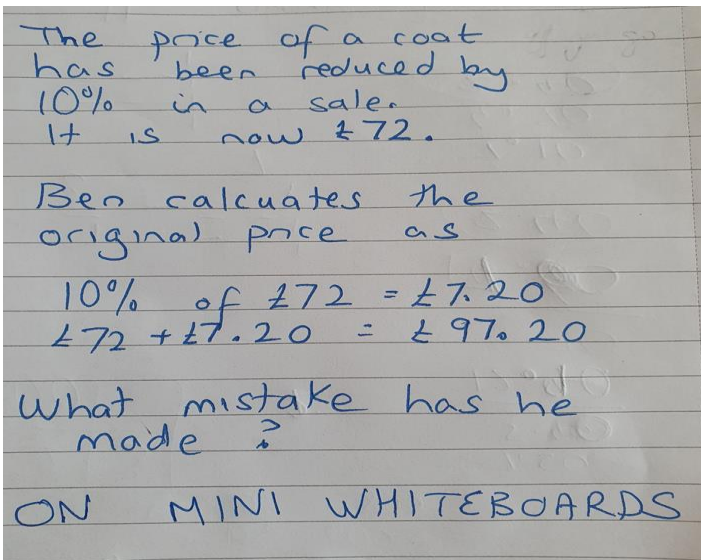 The price of a coat
has been reduced by
10% in a sale.
It is now £72.
Ben calcuates the
original price as
10% of £72 = £7.20
£72 + £7.20 = £97.20
What mistake has he
made ?
ON MINI WHITEBOARDS